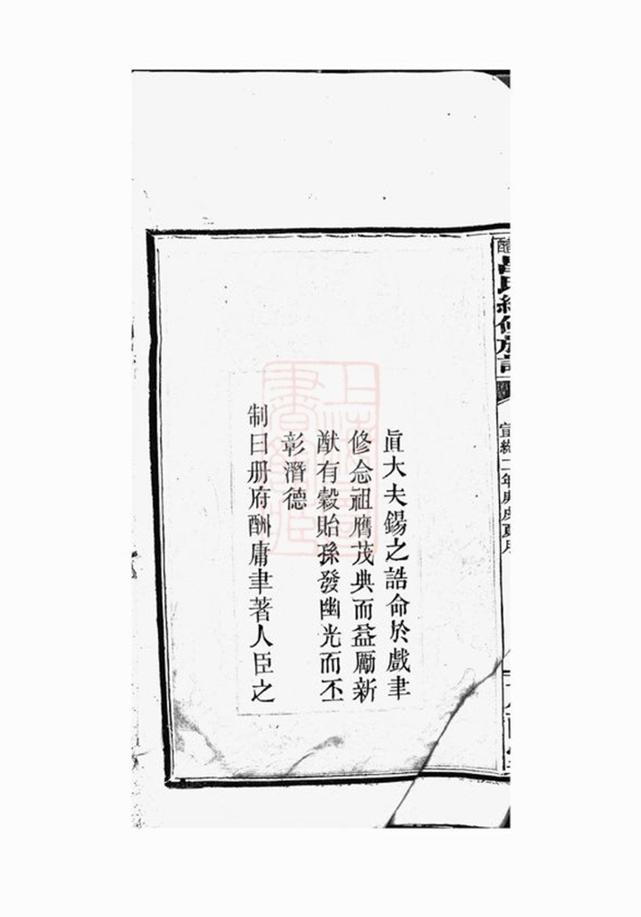 宣統二年庚戌夏月
直大夫錫之誥命於戲聿
修念祖膺茂典而益勵新
猷有穀貽孫發幽光而丕
彰潛德
制曰册府酬庸聿著人臣之